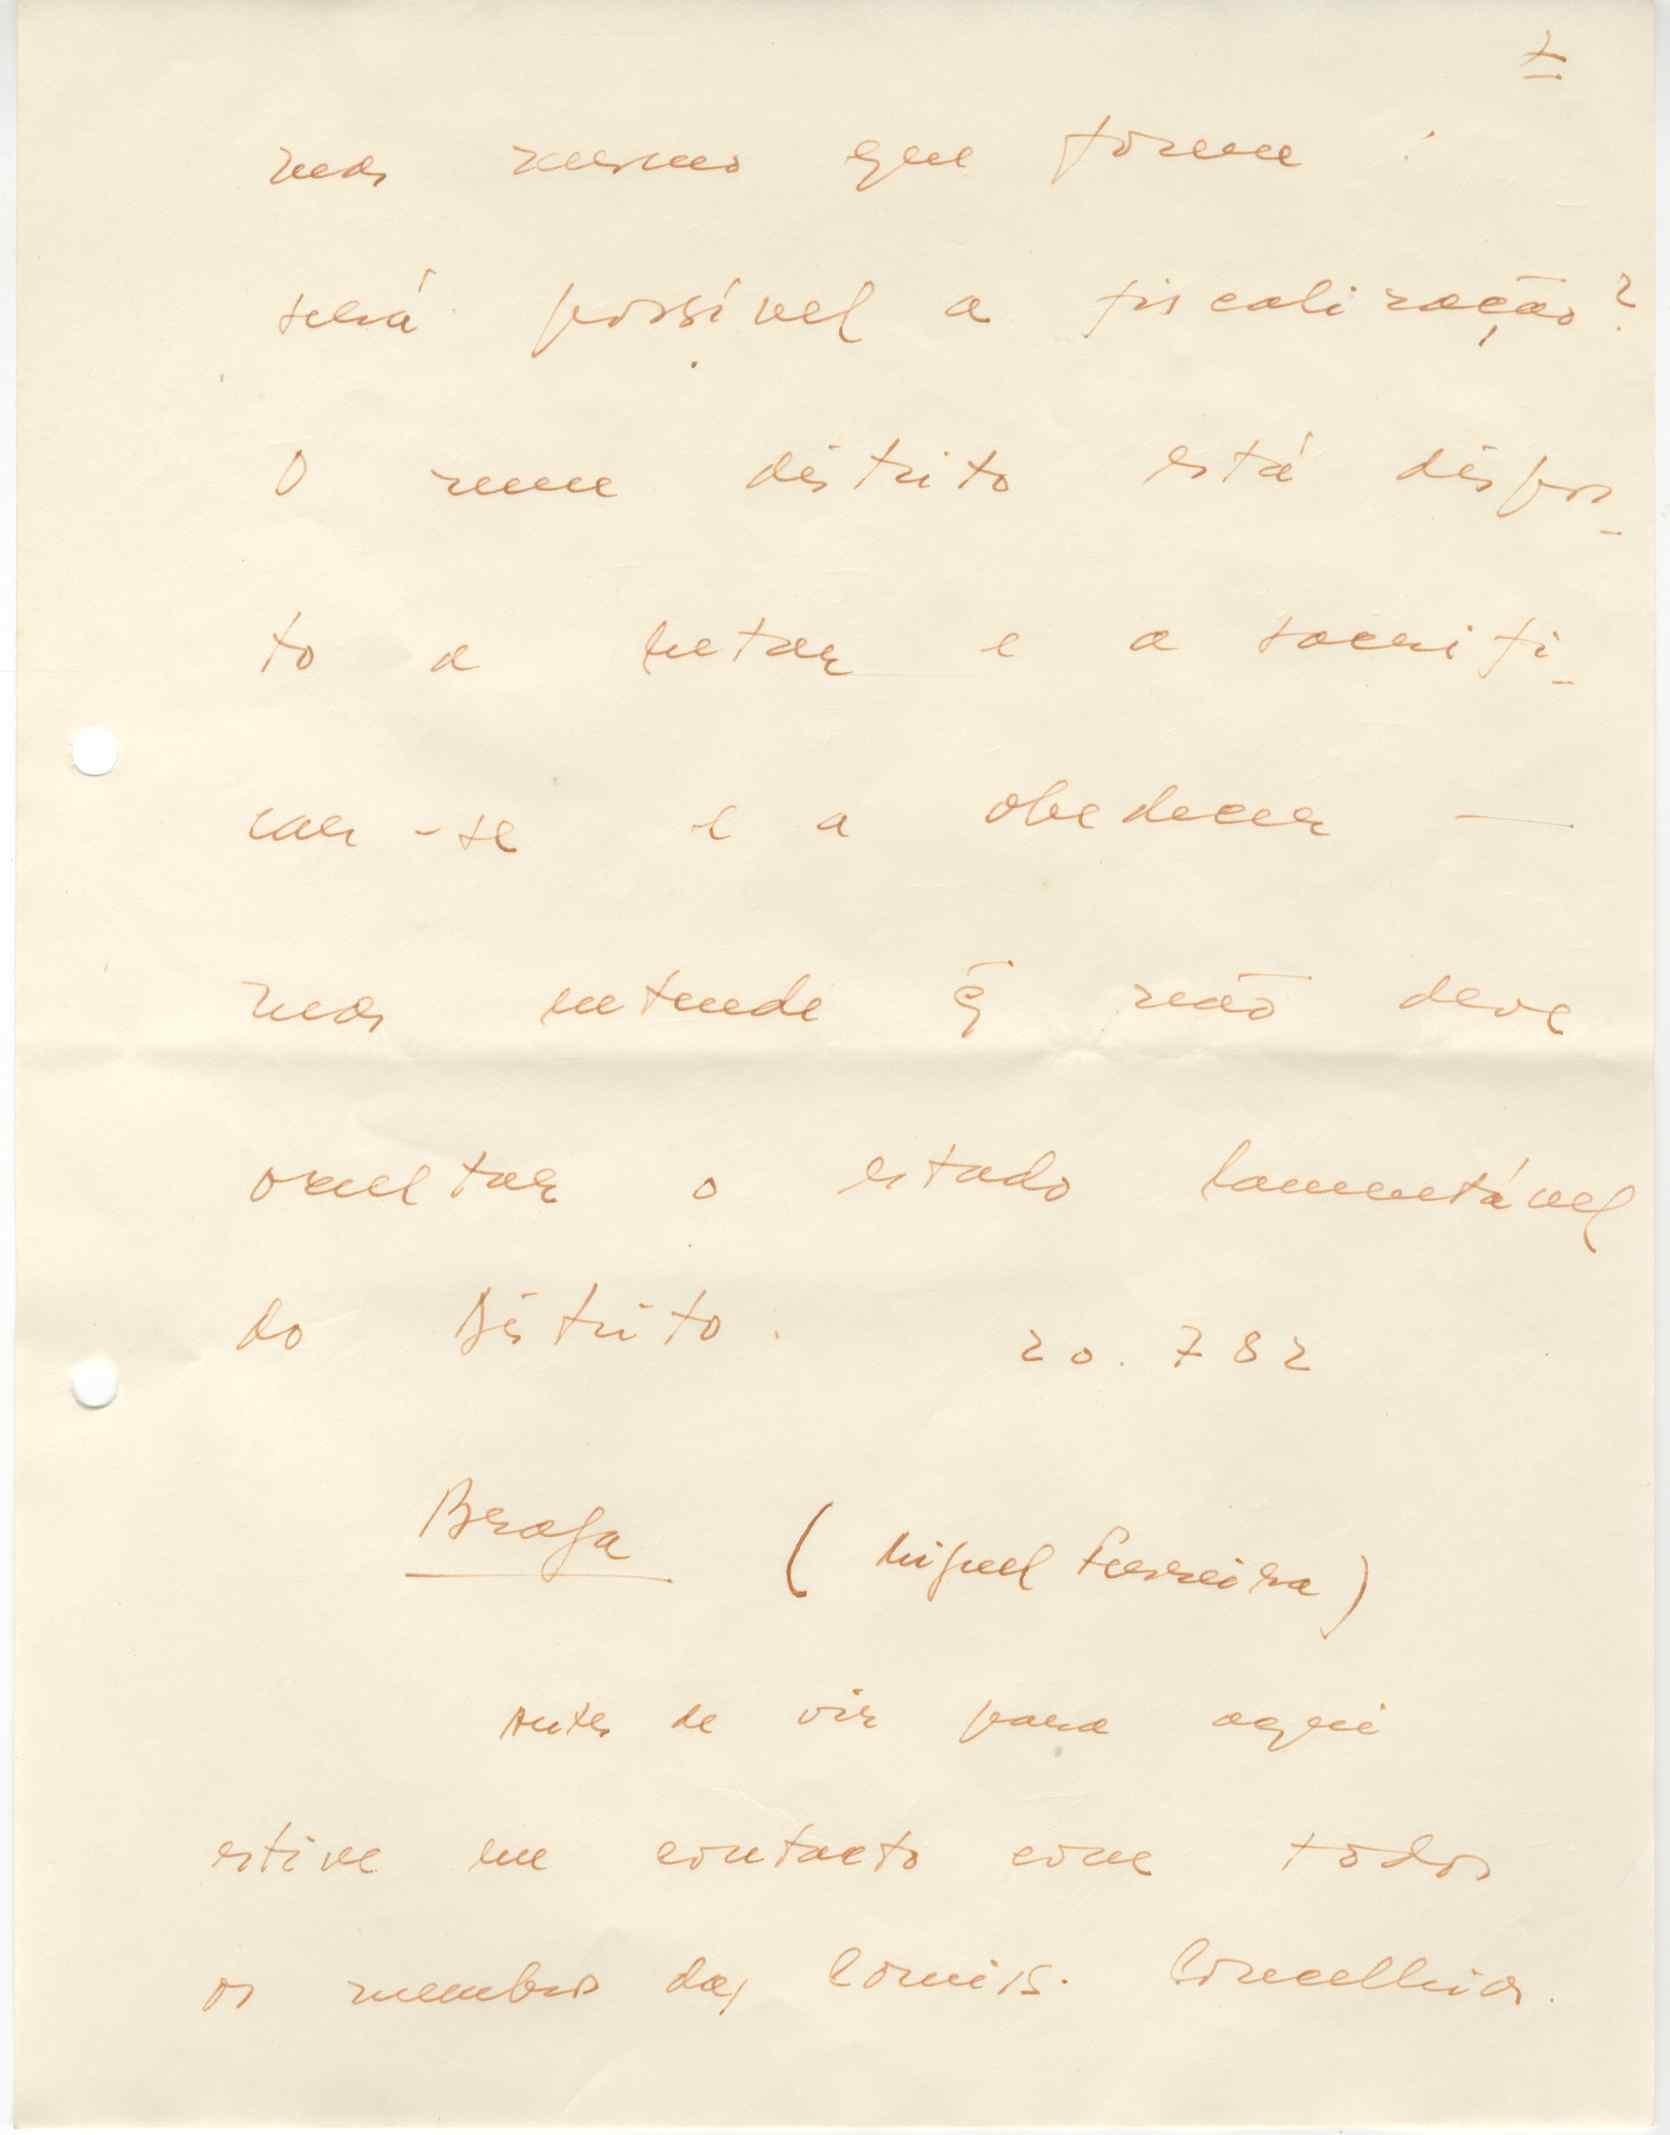 7
mas mesmo que fosse :
será possível a fiscalização?
O meu distrito está dispos-
to a lutar e a sacrifi-
car-se e a obedecer —
mas entende q̃ não deve
ocultar o estado lamentável
do Distrito. 20.782
Braga (Miguel Ferreira)
Antes de vir para aqui
estive em contacto com todos
os membros das Comis. Concelhias.